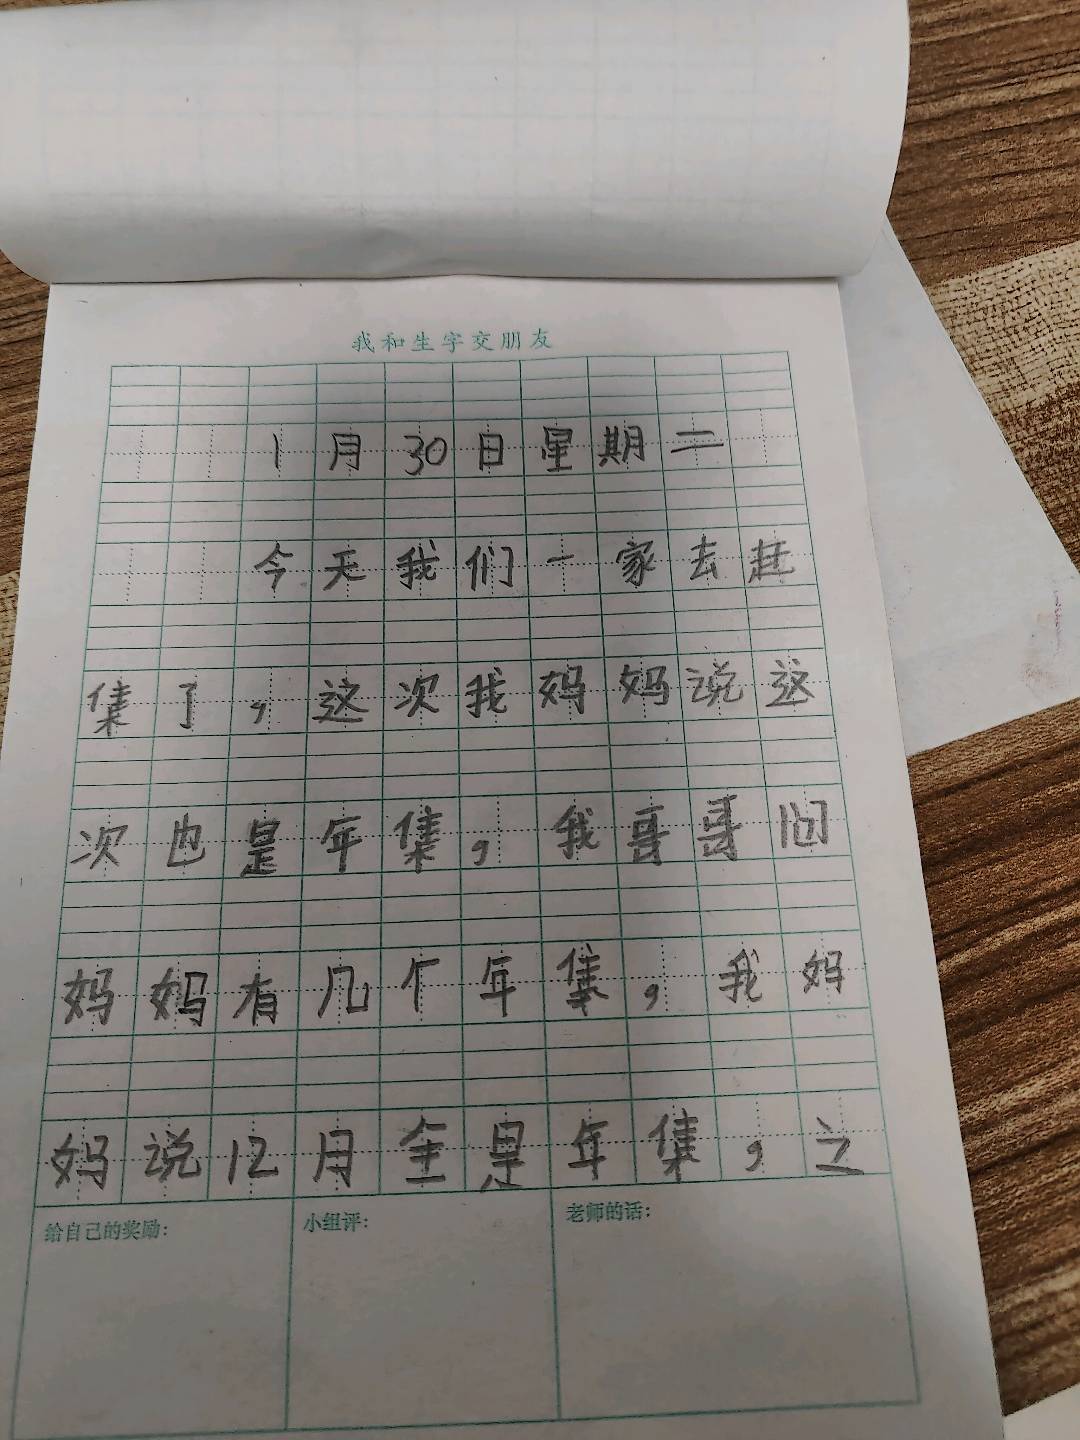 我和生字交朋友
1月30日星期二
今天我们一家去赶
集了，这次我妈妈说这
次也是年集，我哥哥问
妈妈有几个年集，我妈
妈说12月全是年集，之
给自己的奖励：
小组评：
老师的话：